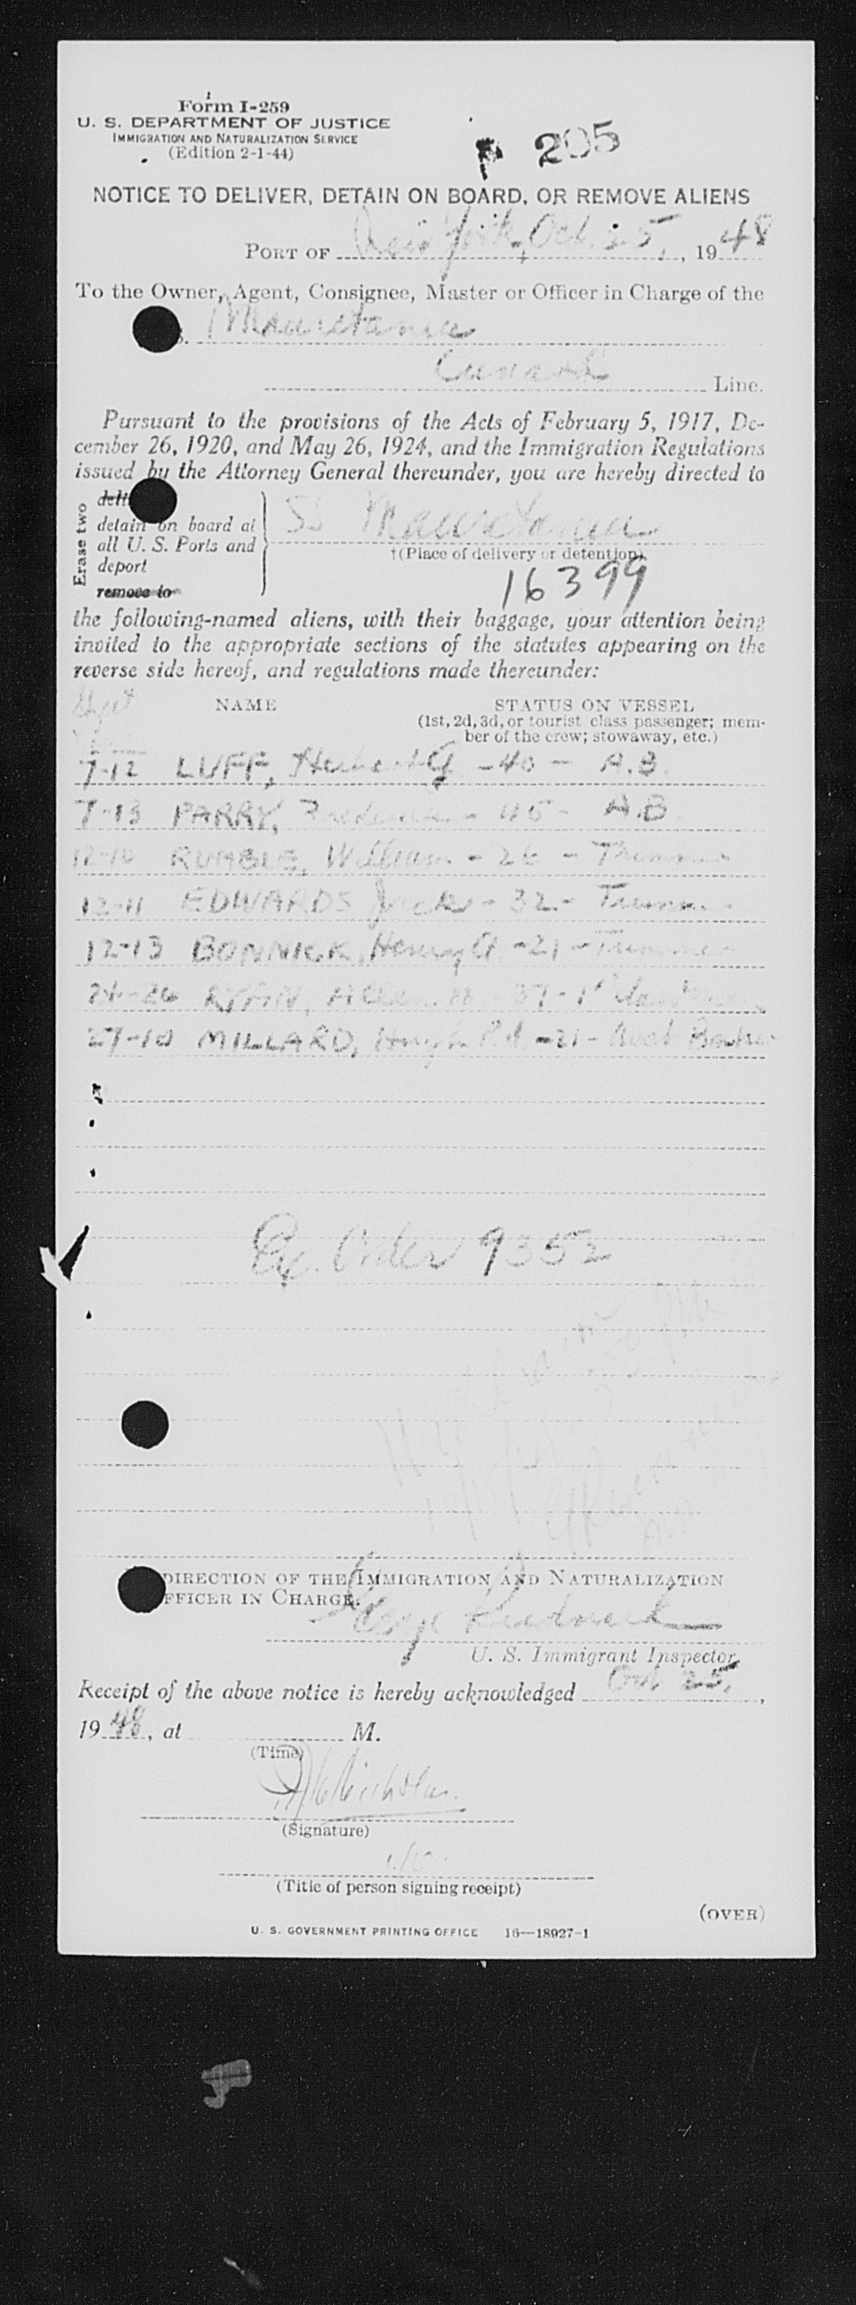 Form I-259
U. S. DEPARTMENT OF JUSTICE
IMMIGRATION AND NATURALIZATION SERVICE
(Edition 2-1-44)
205
NOTICE TO DELIVER, DETAIN ON BOARD, OR REMOVE ALIENS
PORT OF New York, Oct. 25, 1948
To the Owner, Agent, Consignee, Master or Officer in Charge of the
Mauretania
Cunard Line.
Pursuant to the provisions of the Acts of February 5, 1917, De-
cember 26, 1920, and May 26, 1924, and the Immigration Regulations
issued by the Attorney General thereunder, you are hereby directed to
Erase two
detain on board at
all U. S. Ports and
deport
remove to
SS Mauretania
†(Place of delivery or detention)
16399
the following-named aliens, with their baggage, your attention being
invited to the appropriate sections of the statutes appearing on the
reverse side hereof, and regulations made thereunder:
NAME STATUS ON VESSEL
(1st, 2d, 3d, or tourist class passenger; mem-
ber of the crew; stowaway, etc.)
7-12 LUFF, Herbert G - 40 - A.B.
7-13 PARRY, - 45 - A.B
12-10 RUMBLE, William - 26 - Trimmer
12-11 EDWARDS Jack - 32 - Trimmer
12-13 BONNICK, Henry A - 21 - Trimmer
24-26 RYAN, - 37 -
27-10 MILLARD, Hugh - 21 - Asst Baker
Ex. Order 9352
DIRECTION OF THE IMMIGRATION AND NATURALIZATION
OFFICER IN CHARGE.
George
U. S. Immigrant Inspector.
Receipt of the above notice is hereby acknowledged Oct 25,
1948, at M.
(Time)
Nicholas
(Signature)
(Title of person signing receipt)
(OVER)
U. S. GOVERNMENT PRINTING OFFICE 16—18927-1